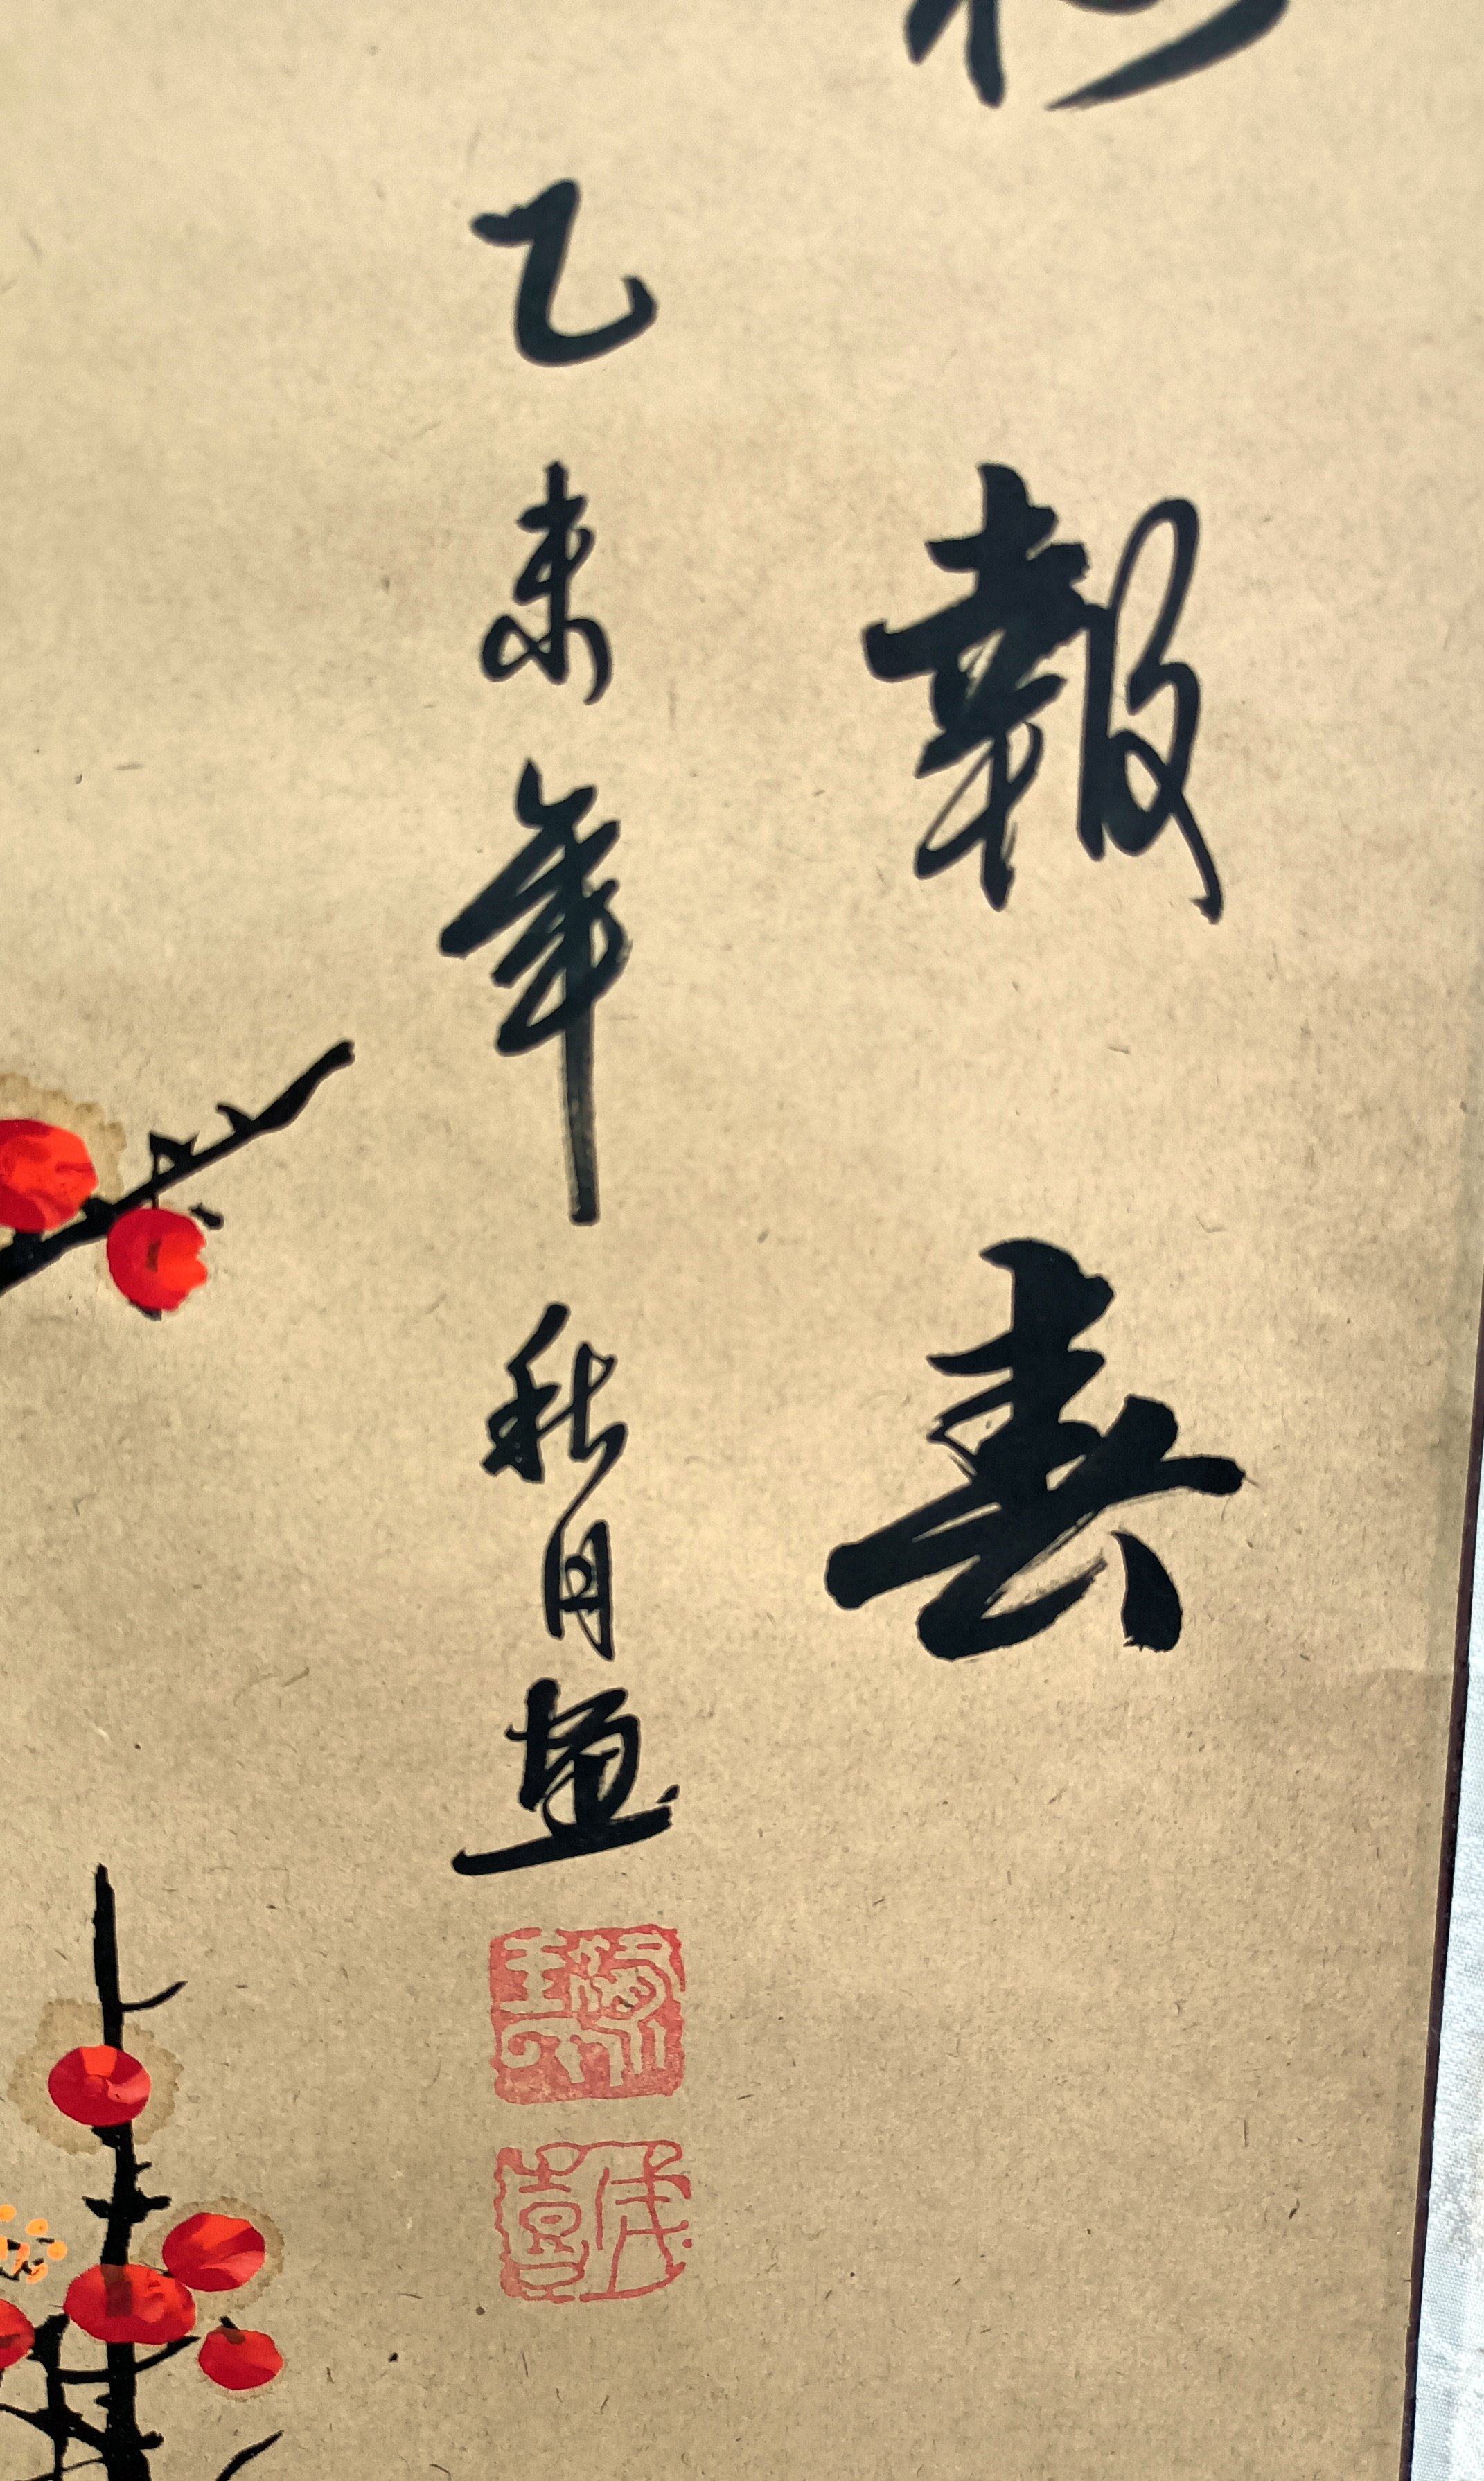 報春
乙未年秋月畫
成喜